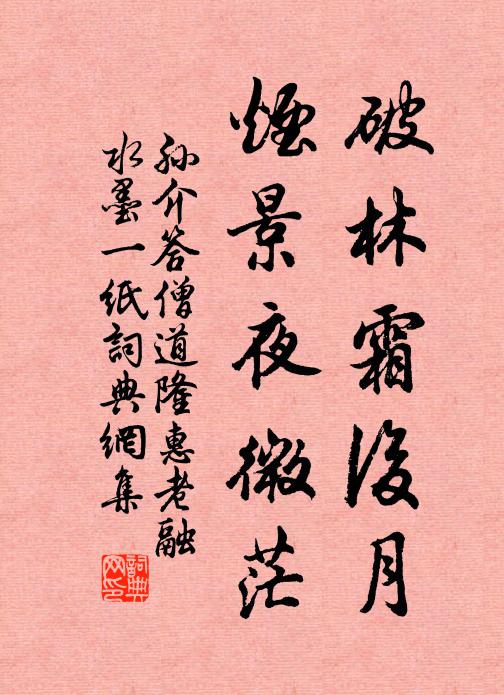 破林霜後月
煙景夜微茫
孫介答僧道隆惠老融
水墨一紙詞典網集
詞典网印